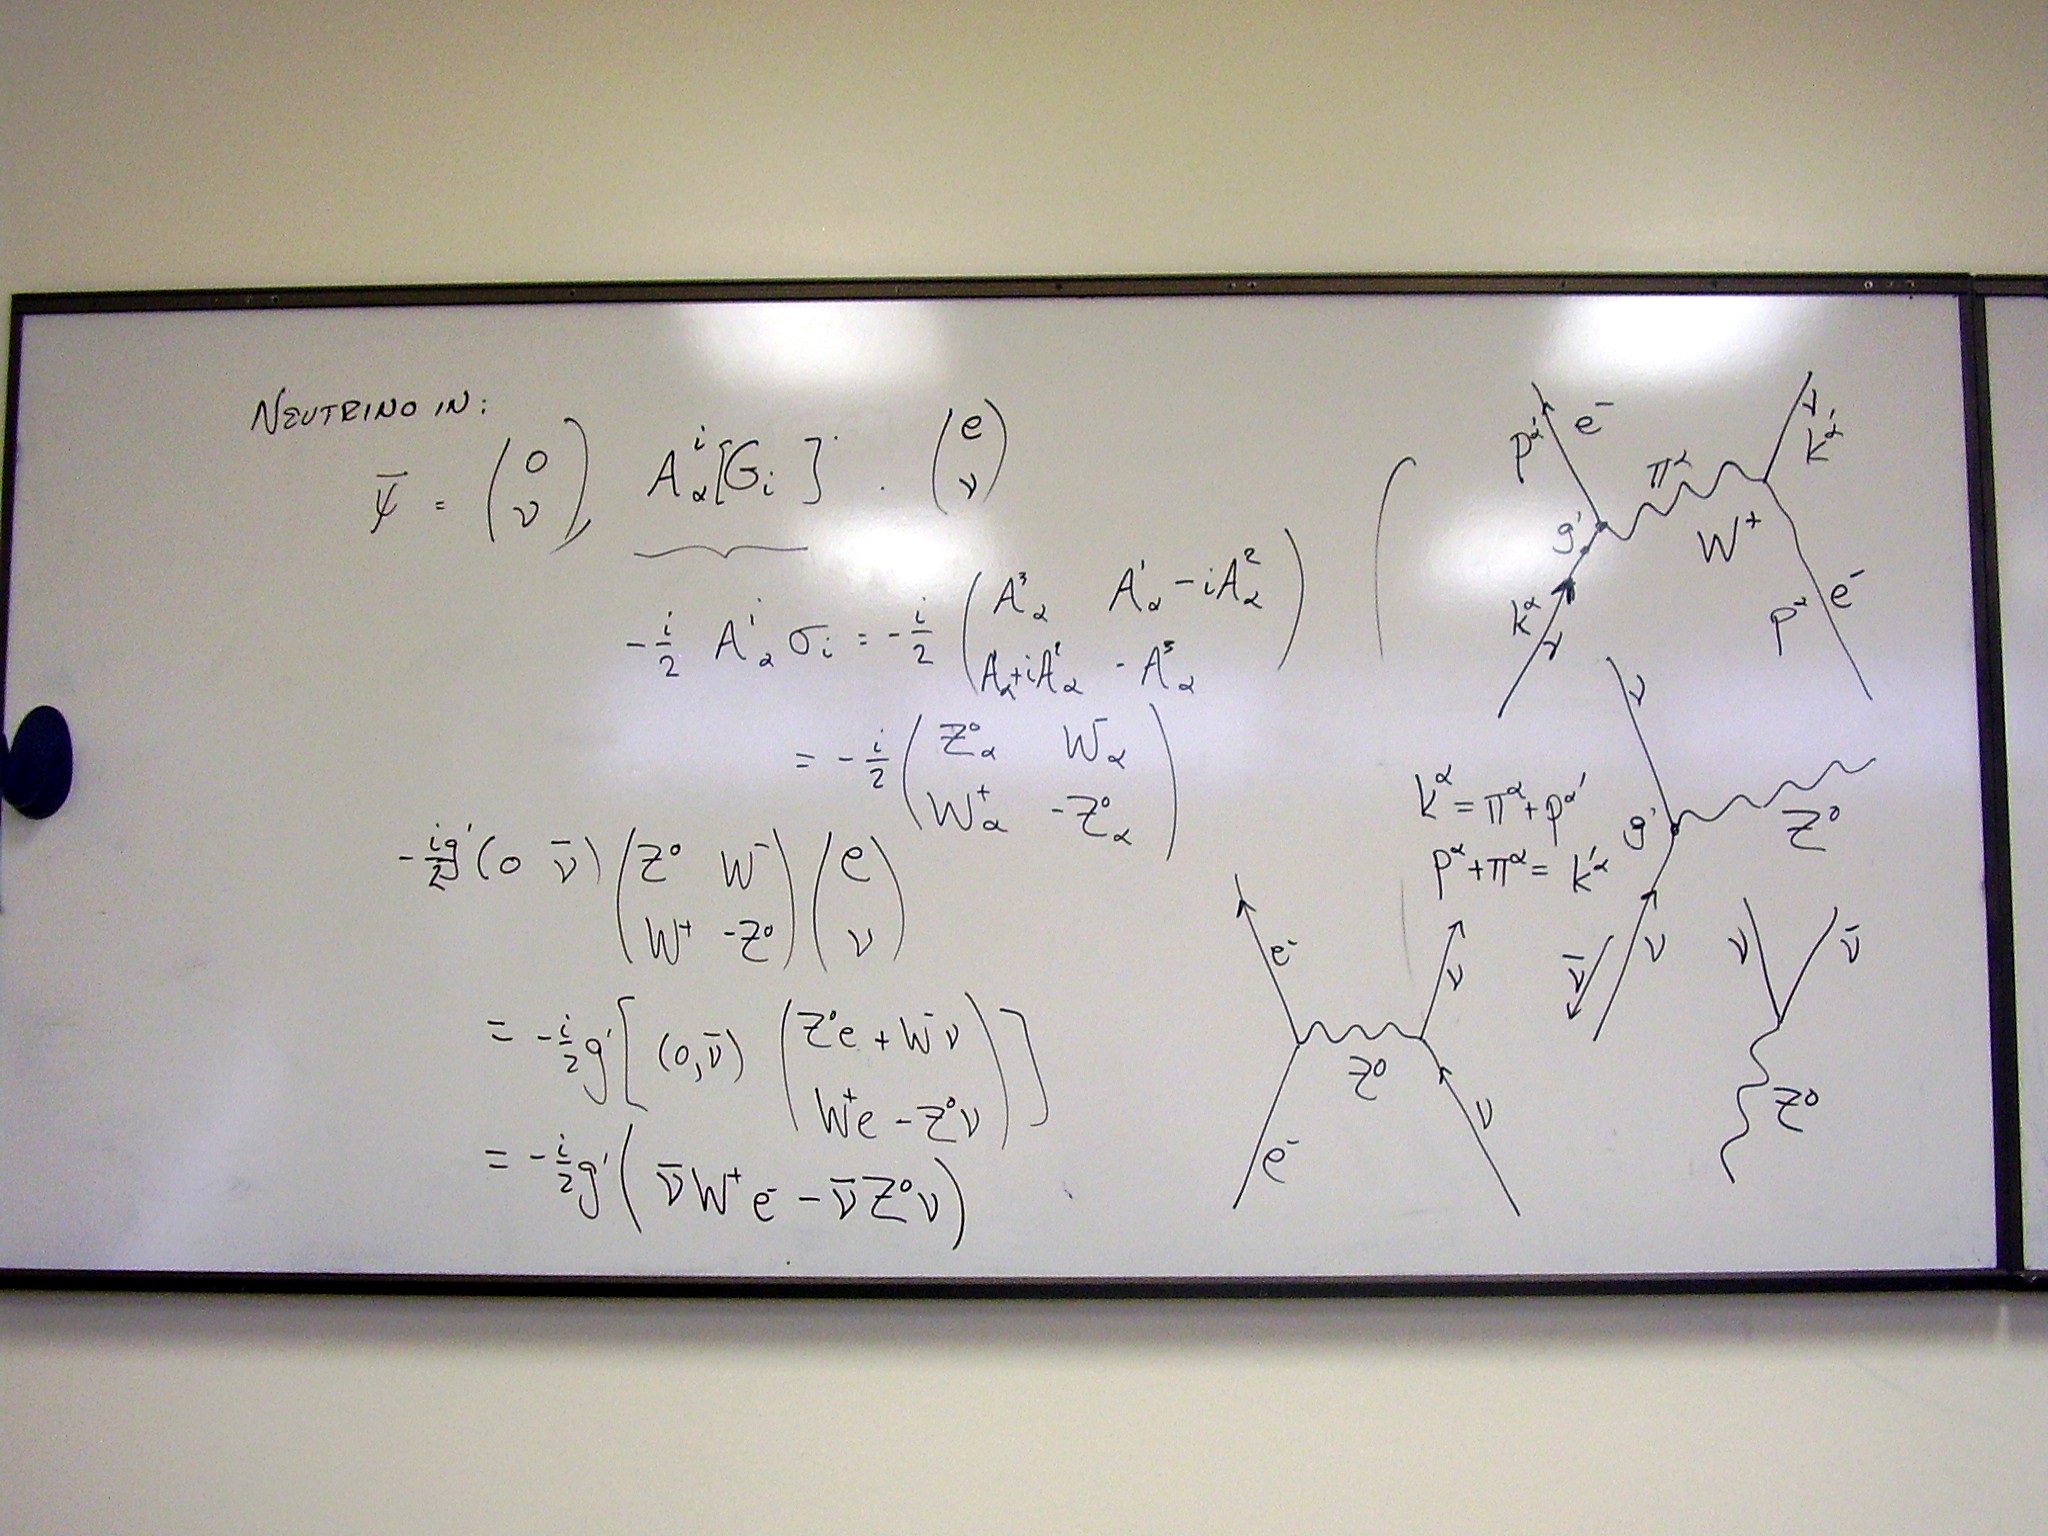 NEUTRINO IN:
ψ̄ = (0 ν), A^i_α [G_i] · (e ν)
-i/2 A^i_α σ_i = -i/2 (A^3_α A^1_α - iA^2_α
A^1_α + iA^2_α - A^3_α)
= -i/2 (Z^0_α W^-_α
W^+_α -Z^0_α)
-ig'/2 (0 ν̄) (Z^0 W^- (e
W^+ -Z^0) ν)
= -i/2 g' [(0, ν̄) (Z^0e + W^-ν
W^+e - Z^0ν)]
= -i/2 g' (ν̄W^+e^- - ν̄Z^0ν)
p'^α e^-
ν k'^α
π^α
g' W^+
k^α ν
p^α e^-
k^α = π^α + p^α'
p^α + π^α = k'^α
ν
g' Z^0
ν̄ ν
e^- ν
Z^0
e^- ν
ν ν̄
Z^0